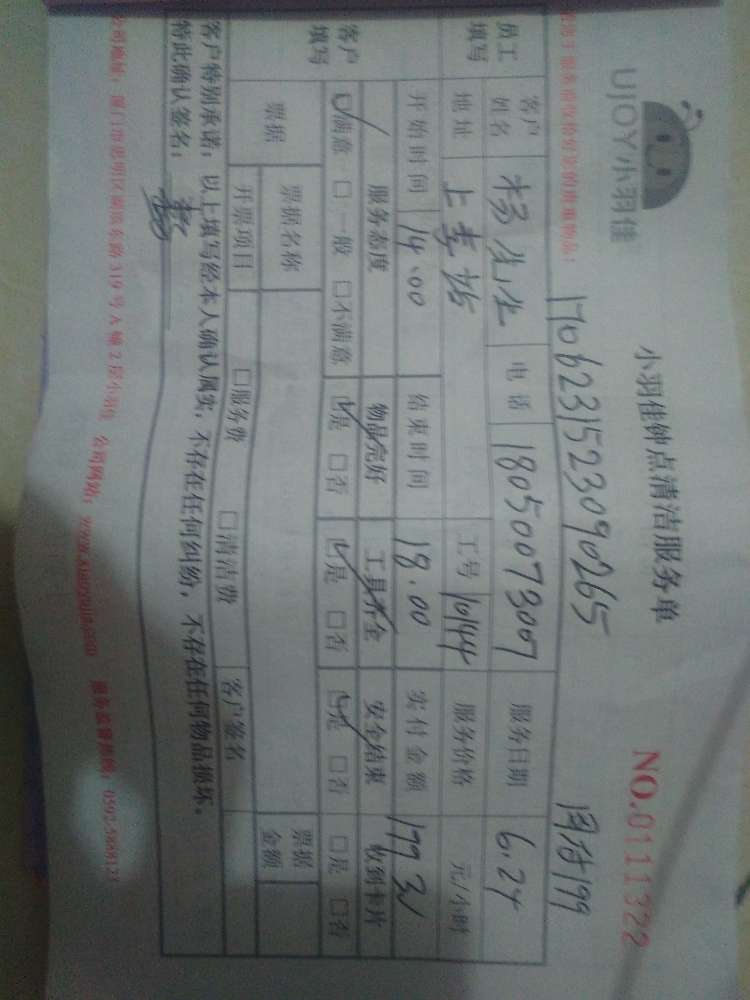 UJOY小羽佳
小羽佳钟点清洁服务单
NO.0111322
1706231523090265
员工填写
客户姓名 杨先生 电话 18050073007 服务日期 6.24
地址 工号 10144 服务价格 元/小时
开始时间 14.00 结束时间 18.00 实付金额 199元
客户填写
服务态度 物品完好 工具齐全 安全结束 收到卡片
☑满意 □一般 □不满意 ☑是 □否 ☑是 □否 ☑是 □否 □是 □否
票据 票据名称 票据金额
开票项目 □服务费 □清洁费 客户签名
客户特别承诺：以上填写经本人确认属实，不存在任何纠纷，不存在任何物品损坏。
特此确认签名：
公司地址：厦门市思明区 319号A幢2楼小羽佳 公司网站： 服务监督热线：0592-5888121